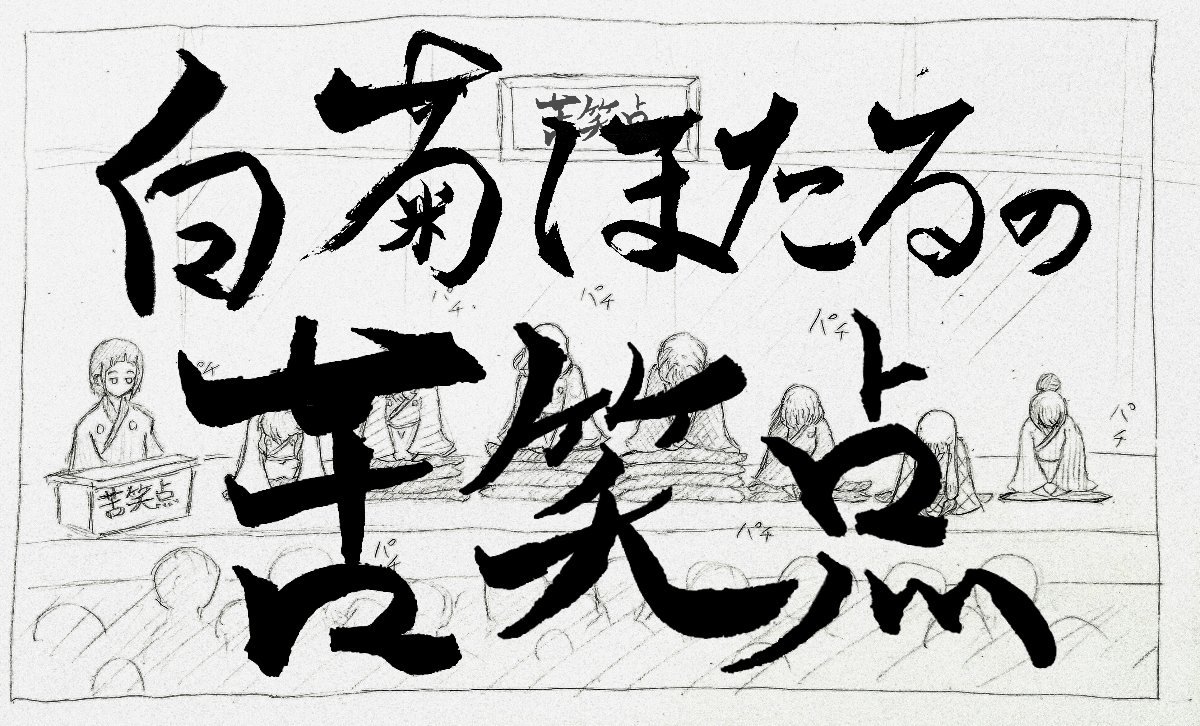 白菊ほたるの
苦笑点
苦笑点
パチ
パチ
パチ
パチ
パチ
苦笑点
パチ
パチ